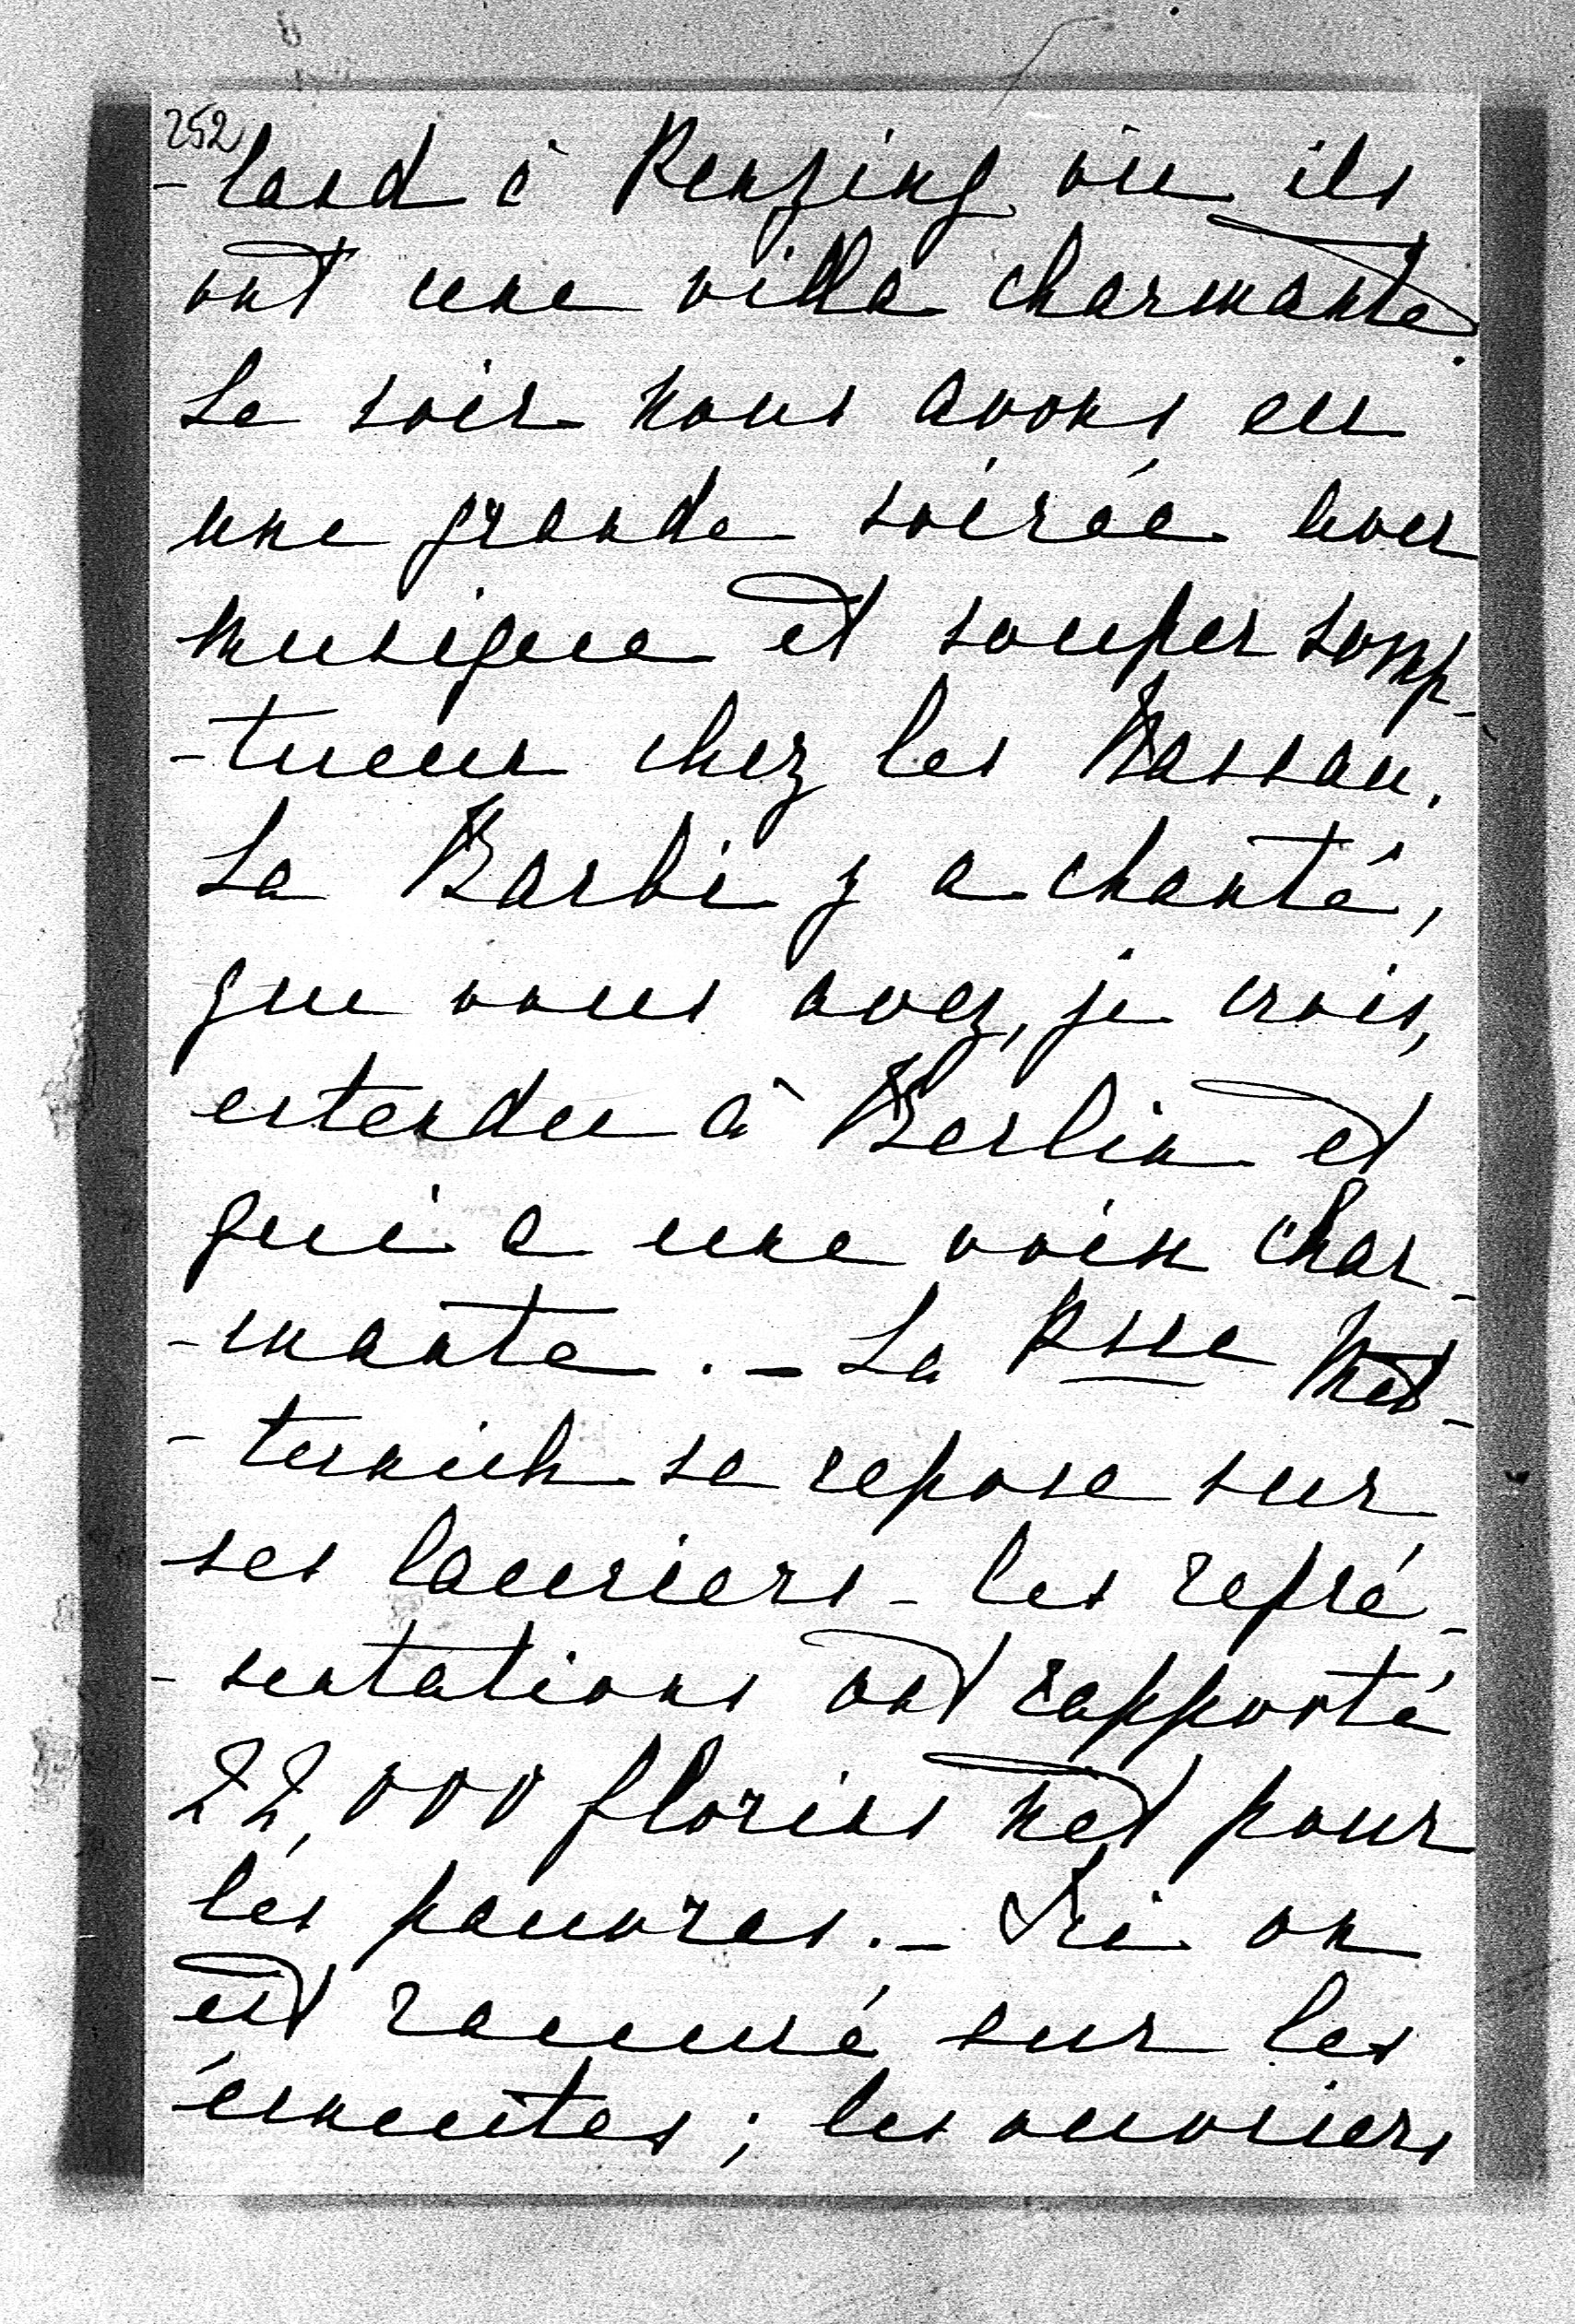 252
-land à Penzing où ils
ont une villa charmante.
Le soir nous avons eu
une grande soirée avec
musique et souper somp-
-tueux chez les Nassau.
La Barbi y a chanté,
que vous avez, je crois,
entendue à Berlin et
qui a une voix char-
-mante. - La Psse Met-
-ternich se repose sur
ses lauriers - les repré-
-sentations ont rapporté
22,000 florins net pour
les pauvres. - Ici on
est rassuré sur les
émeutes; les ouvriers